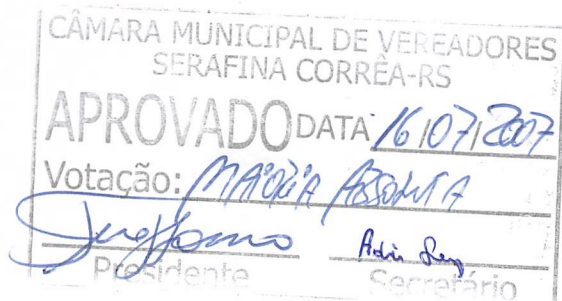 CÂMARA MUNICIPAL DE VEREADORES
SERAFINA CORRÊA-RS
APROVADO DATA 16/07/2007
Votação: MAIORIA ABSOLUTA
Presidente Secretário